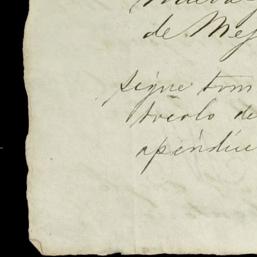 de Mej
sigue tom
tículo de
apéndice